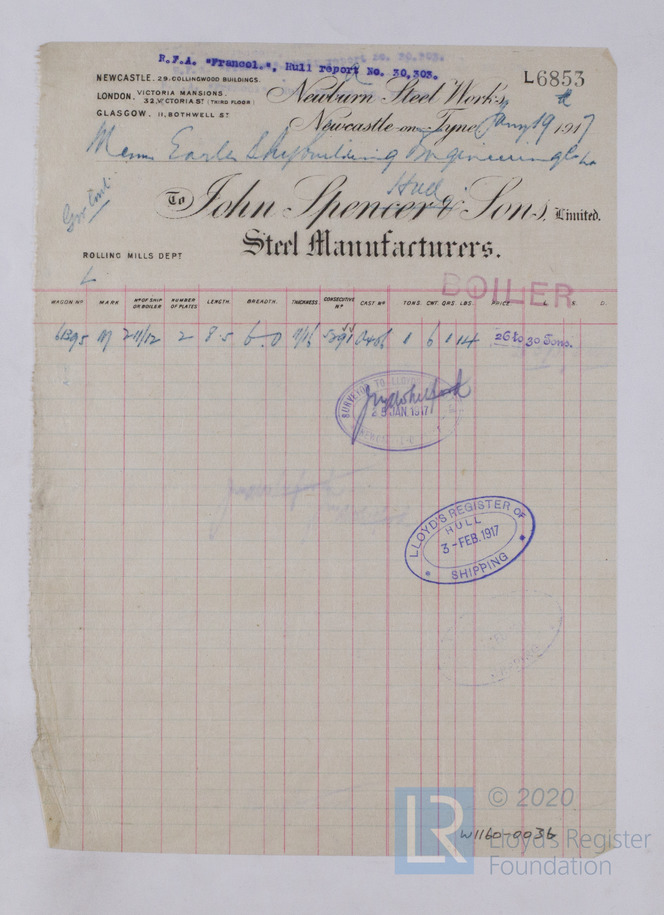 R.F.A. "Francol.", Hull report No. 30,303.
L6853
NEWCASTLE. 29. COLLINGWOOD BUILDINGS.
LONDON. VICTORIA MANSIONS.
32, VICTORIA ST (THIRD FLOOR)
GLASGOW. 11, BOTHWELL ST
Newburn Steel Works
Newcastle-on-Tyne, Jany 19th 1917
Messrs Earles Shipbuilding & Engineering Co Ld
Hull
To John Spencer & Sons, Limited.
Steel Manufacturers.
ROLLING MILLS DEPT
BOILER
WAGON Nº MARK Nº OF SHIP OR BOILER NUMBER OF PLATES LENGTH. BREADTH. THICKNESS. CONSECUTIVE Nº CAST Nº TONS. CWT. QRS. LBS. PRICE £. S. D.
61395 M 2 8.5 6.0 1 6 1 14 26 to 30 Tons.
SURVEYOR TO LLOYD'S
JAN. 1917
LLOYD'S REGISTER OF
HULL
3-FEB. 1917
SHIPPING
LR
© 2020
Lloyd's Register
Foundation
W1160-0036